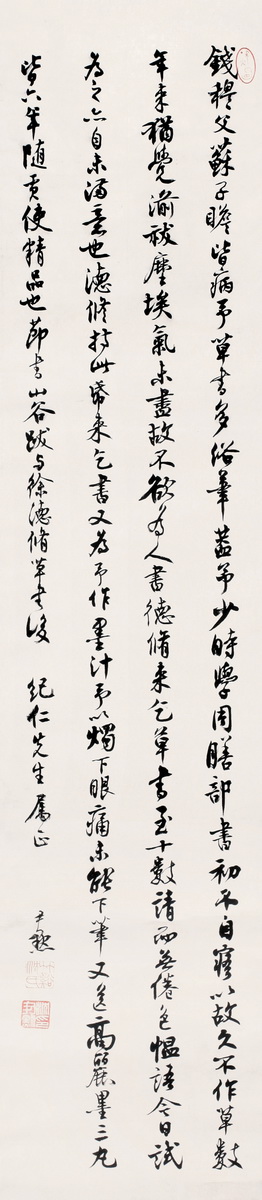 錢穆父蘇子瞻皆病予草書多俗筆蓋予少時學周膳部書初不自寤以故久不作草數
年來猶覺湔祓塵埃氣未盡故不欲為人書德脩來乞草書至十數請而無倦色慍語今日試
為之亦自未滿意也德脩持此紙來乞書又為予作墨汁予以燭下眼痛未能下筆又送高麗墨二丸
皆六年隨貢使精品也節書山谷跋與徐德脩草書後
紀仁先生屬正
尹默